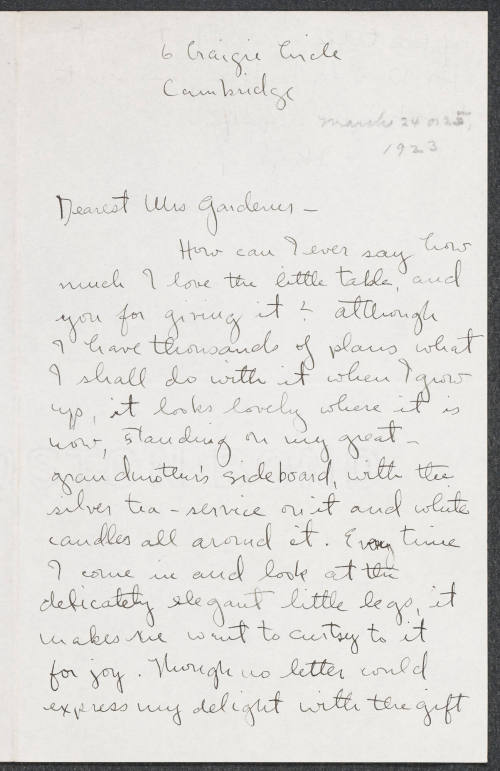 6 Craigie Circle
Cambridge
March 24 or 25,
1923
Dearest Mrs Gardener –
How can I ever say how
much I love the little table, and
you for giving it? Although
I have thousands of plans what
I shall do with it when I grow
up, it looks lovely where it is
now, standing on my great-
grandmother's sideboard, with the
silver tea-service on it and white
candles all around it. Every time
I come in and look at the
delicately elegant little legs, it
makes me want to curtsy to it
for joy. Though no letter could
express my delight with the gift